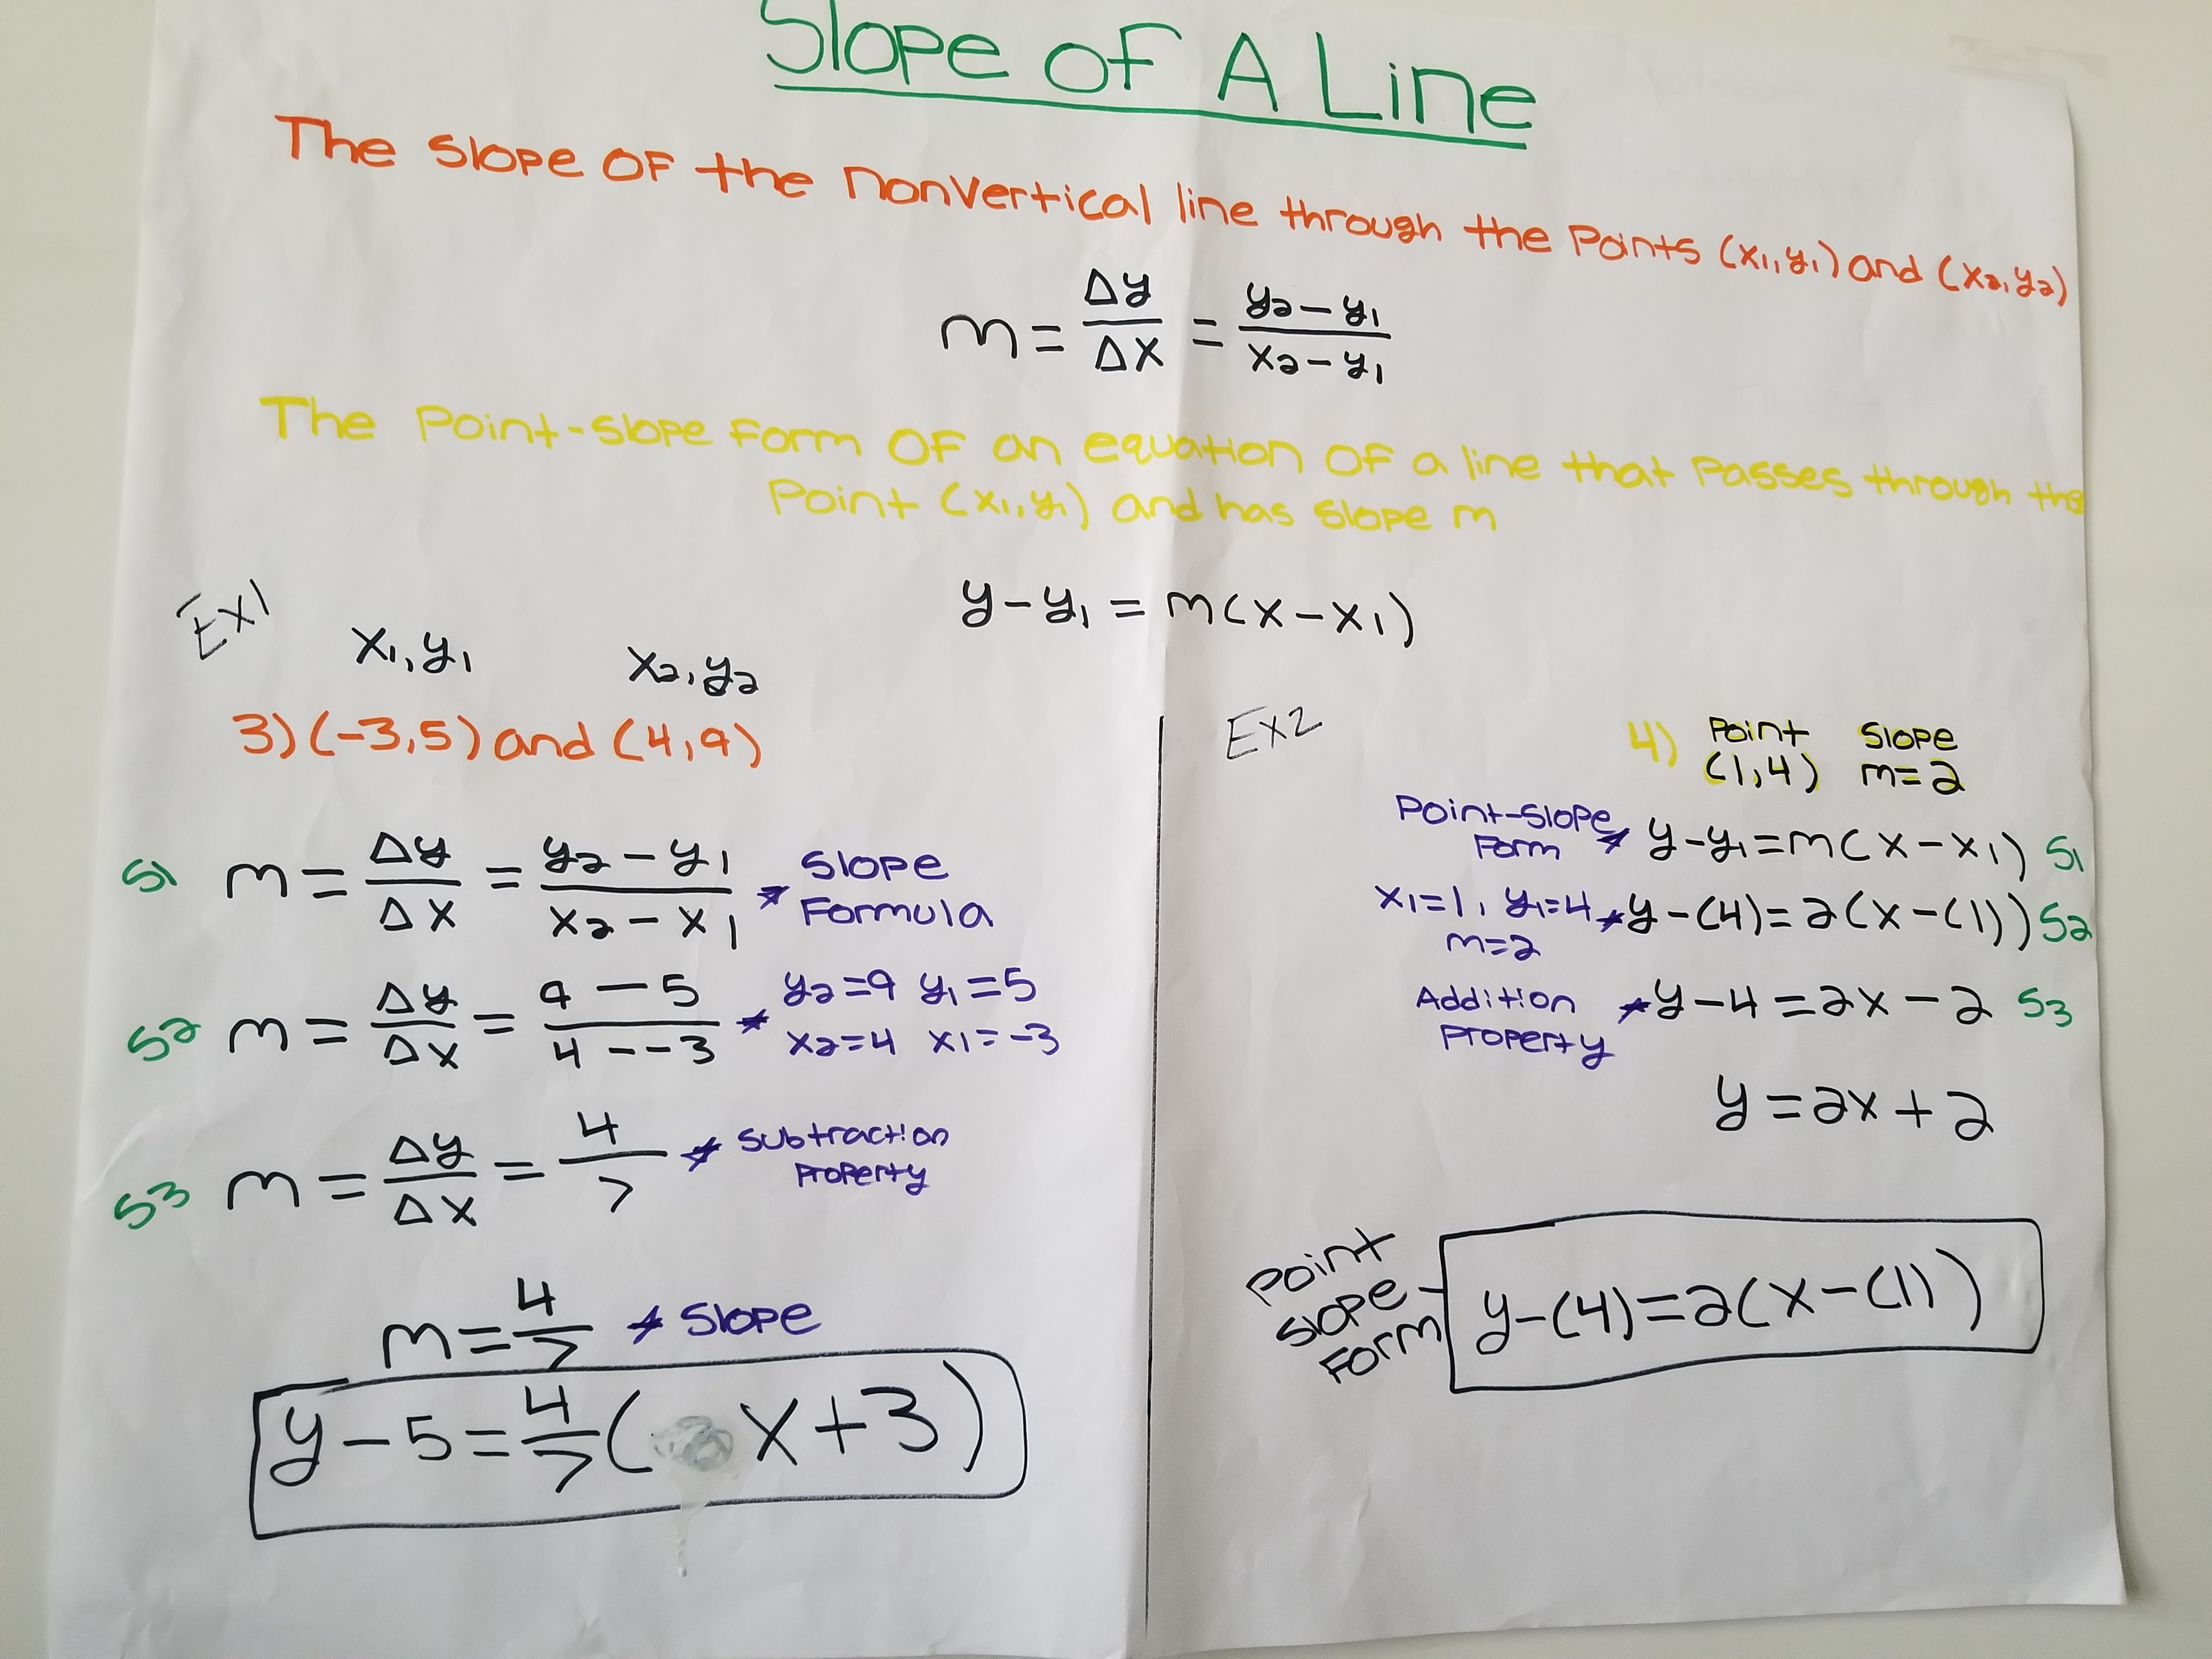 Slope of A Line
The Slope of the nonvertical line through the Points (x₁,y₁) and (x₂,y₂)
m = Δy/Δx = y₂-y₁/x₂-y₁
The Point-slope form of an equation of a line that passes through the
Point (x₁,y₁) and has slope m
y-y₁ = m(x-x₁)
Ex1
x₁,y₁ x₂,y₂
3) (-3,5) and (4,9)
S1 m = Δy/Δx = y₂-y₁/x₂-x₁ * Slope
Formula
S2 m = Δy/Δx = 9-5/4--3 * y₂=9 y₁=5
x₂=4 x₁=-3
S3 m = Δy/Δx = 4/7 * Subtraction
Property
m = 4/7 * Slope
y-5 = 4/7(x+3)
Ex2
4) Point Slope
(1,4) m=2
Point-Slope
Form * y-y₁=m(x-x₁) S1
x₁=1, y₁=4 * y-(4)=2(x-(1)) S2
m=2
Addition * y-4=2x-2 S3
Property
y=2x+2
Point
Slope
Form
y-(4)=2(x-(1))